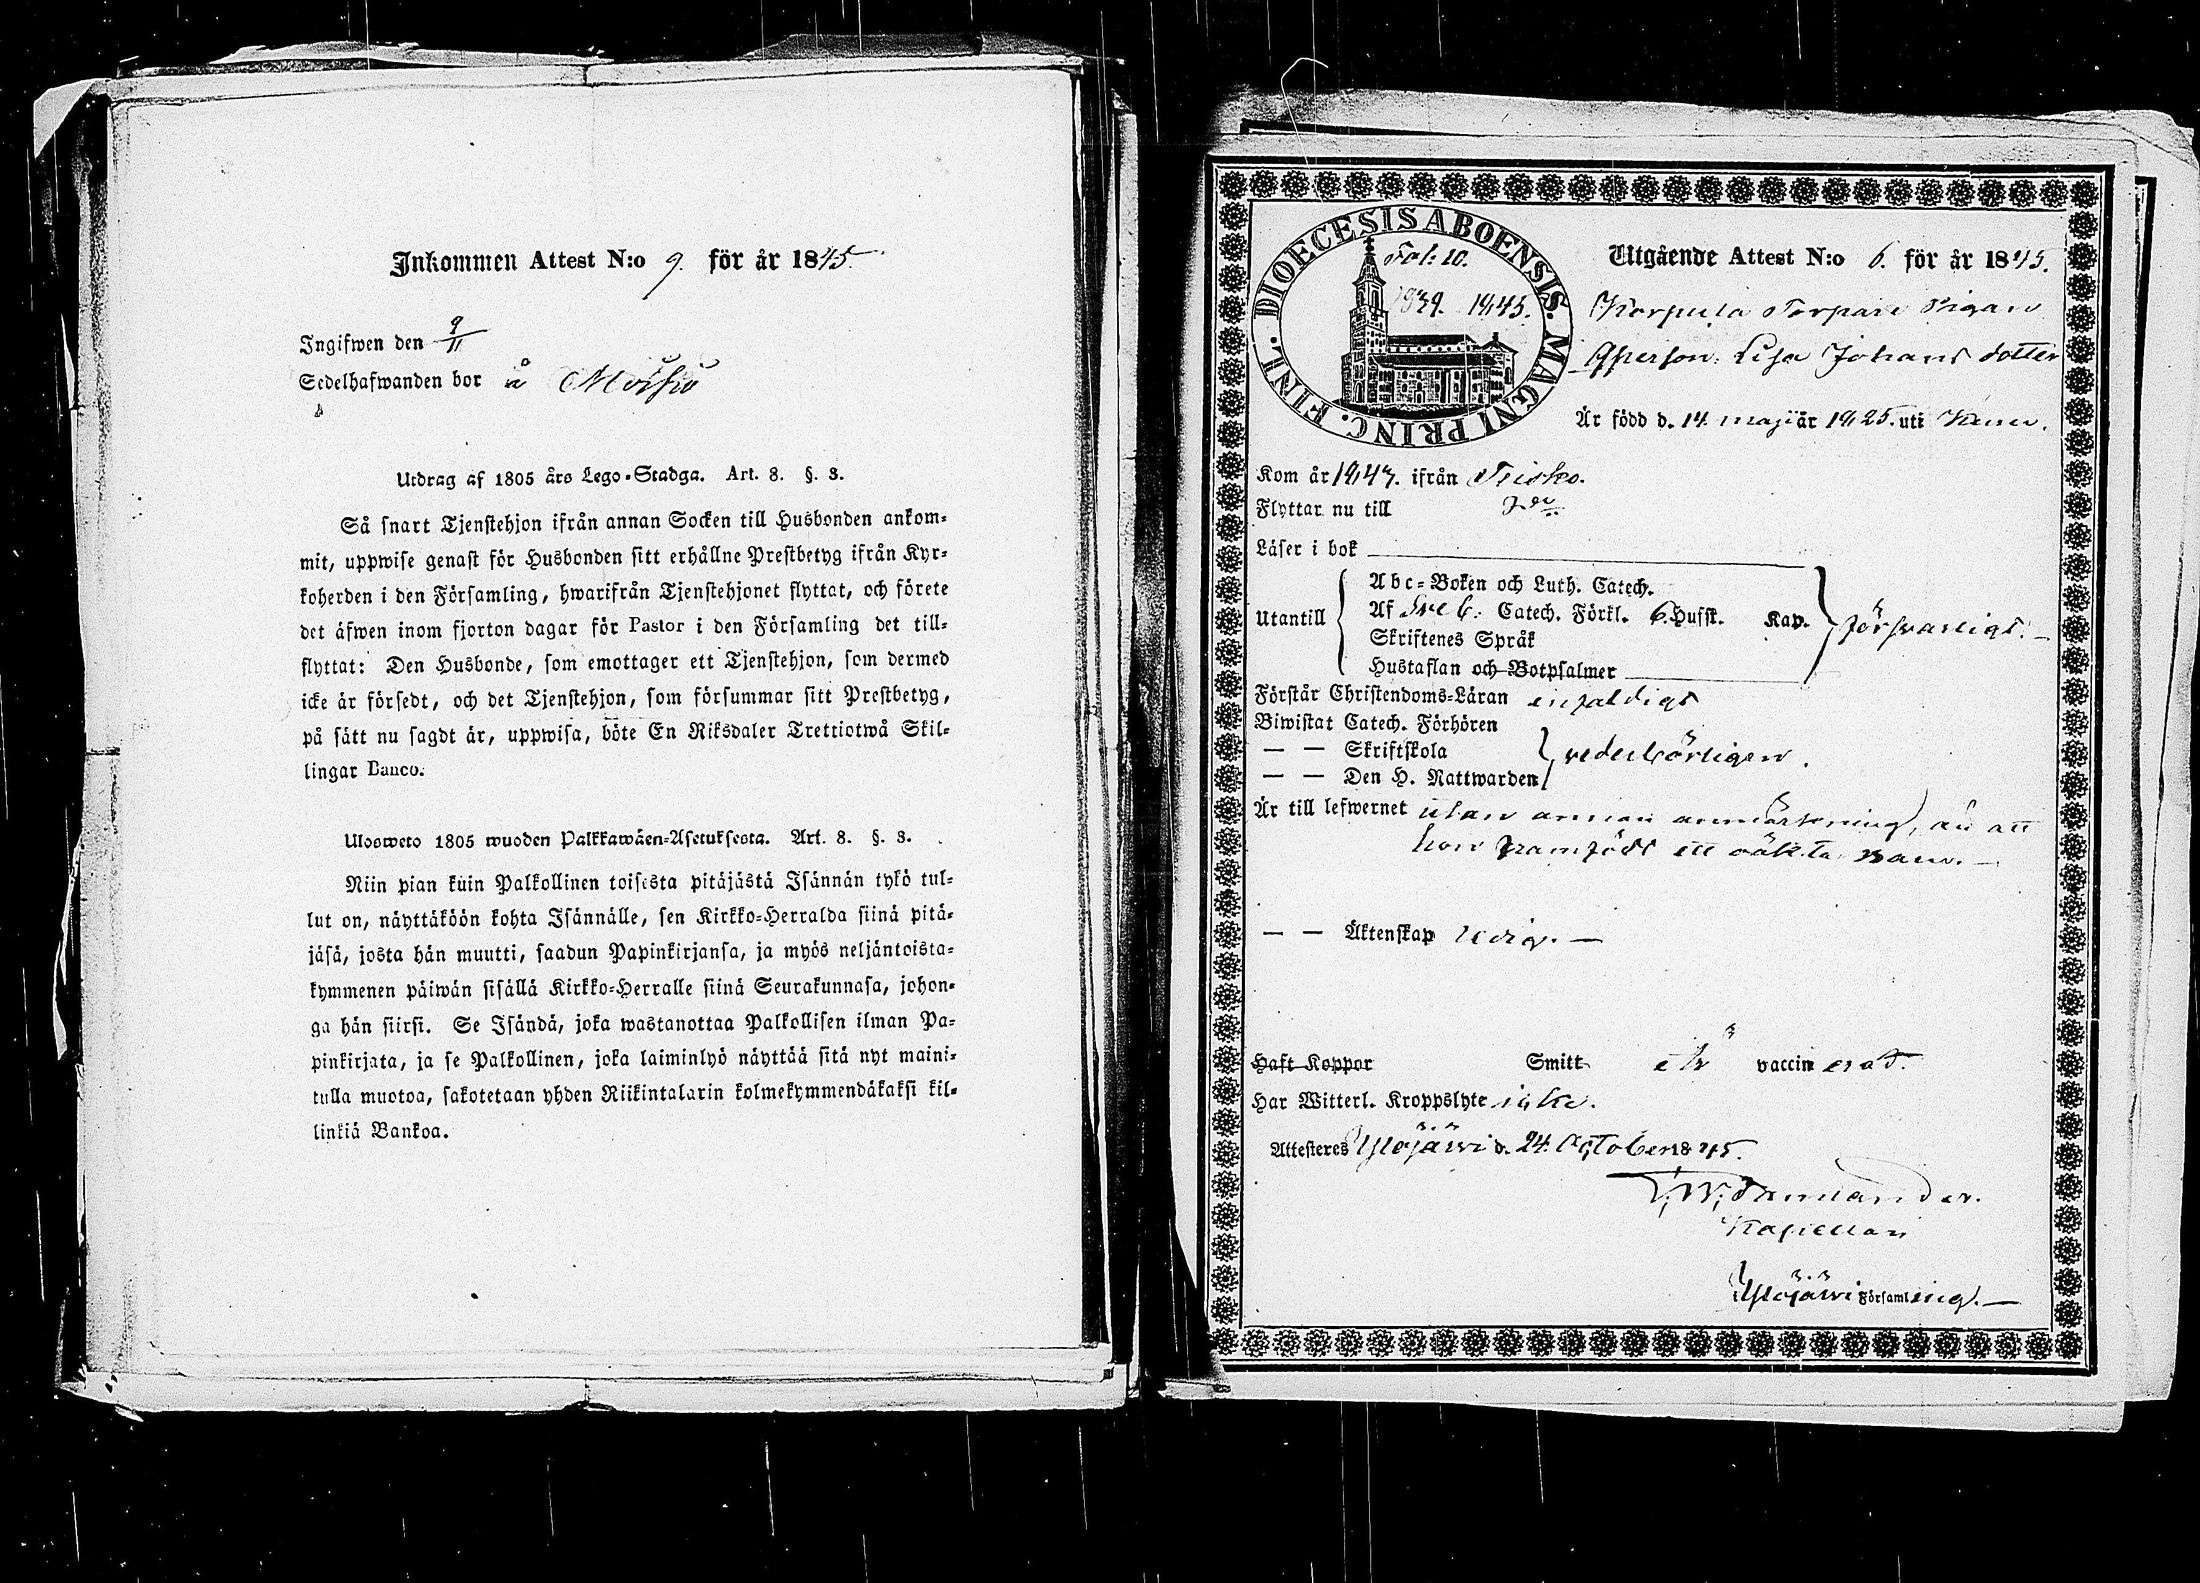 Inkommen Attest N:o 9. för år 1845.
Ingifwen den 9/11
Sedelhafwanden bor å Moisio
Utdrag af 1805 års Lego-Stadga. Art. 8. §. 3.
Så snart Tjenstehjon ifrån annan Socken till Husbonden ankom-
mit, uppwise genast för Husbonden sitt erhållne Prestbetyg ifrån Kyr-
koherden i den Församling, hwarifrån Tjenstehjonet flyttat, och förete
det äfwen inom fjorton dagar för Pastor i den Församling det till-
flyttat: Den Husbonde, som emottager ett Tjenstehjon, som dermed
icke är försedt, och det Tjenstehjon, som försummar sitt Prestbetyg,
på sätt nu sagdt är, uppwisa, böte En Riksdaler Trettiotwå Skil-
lingar Banco.
Ulosweto 1805 wuoden Palkkawäen-Asetuksesta. Art. 8. §. 3.
Niin pian kuin Palkollinen toisesta pitäjästä Isännän tykö tul-
lut on, näyttäköön kohta Isännälle, sen Kirkko-Herralda siinä pitä-
jäsä, josta hän muutti, saadun Papinkirjansa, ja myös neljäntoista-
kymmenen päiwän sisällä Kirkko-Herralle siinä Seurakunnasa, johon-
ga hän siirsi. Se Isändä, joka wastanottaa Palkollisen ilman Pa-
pinkirjata, ja se Palkollinen, joka laiminlyö näyttää sitä nyt maini-
tulla muotoa, sakotetaan yhden Riikintalarin kolmekymmendäkaksi kil-
linkiä Bankoa.
DIOECESIS ABOENSIS. MAGNI PRINC. FINL.
Fol: 10.
1839. 1845.
Utgående Attest N:o 6. för år 1845.
Korpula Torpare Pigan
Qperson: Lisa Johans dotter
Är född d. 14 maji år 1825. uti
Kom år 1843. ifrån Teisko.
Flyttar nu till do
Läser i bok
Utantill
Abc-Boken och Luth. Catech.
Af Sveb: Catech. Förkl. 6. Husst. Kap.
Skriftenes Språk
Hustaflan och Botpsalmer
försvarligt.
Förstår Christendoms-Läran enfaldigt
Biwistat Catech. Förhören
— — Skriftskola
— — Den H. Nattwarden
vederbörligen.
Är till lefwernet utan annan anmärkning, än att
hon framfödt ett oäkta barn.
— — Äktenskap ledig.
Haft Koppor Smitt är vaccinerad.
Har Witterl. Kroppslyte icke.
Attesteres Ylöjärvi d. 24 October 1845.
Kapellan
Ylöjärvi Församling.